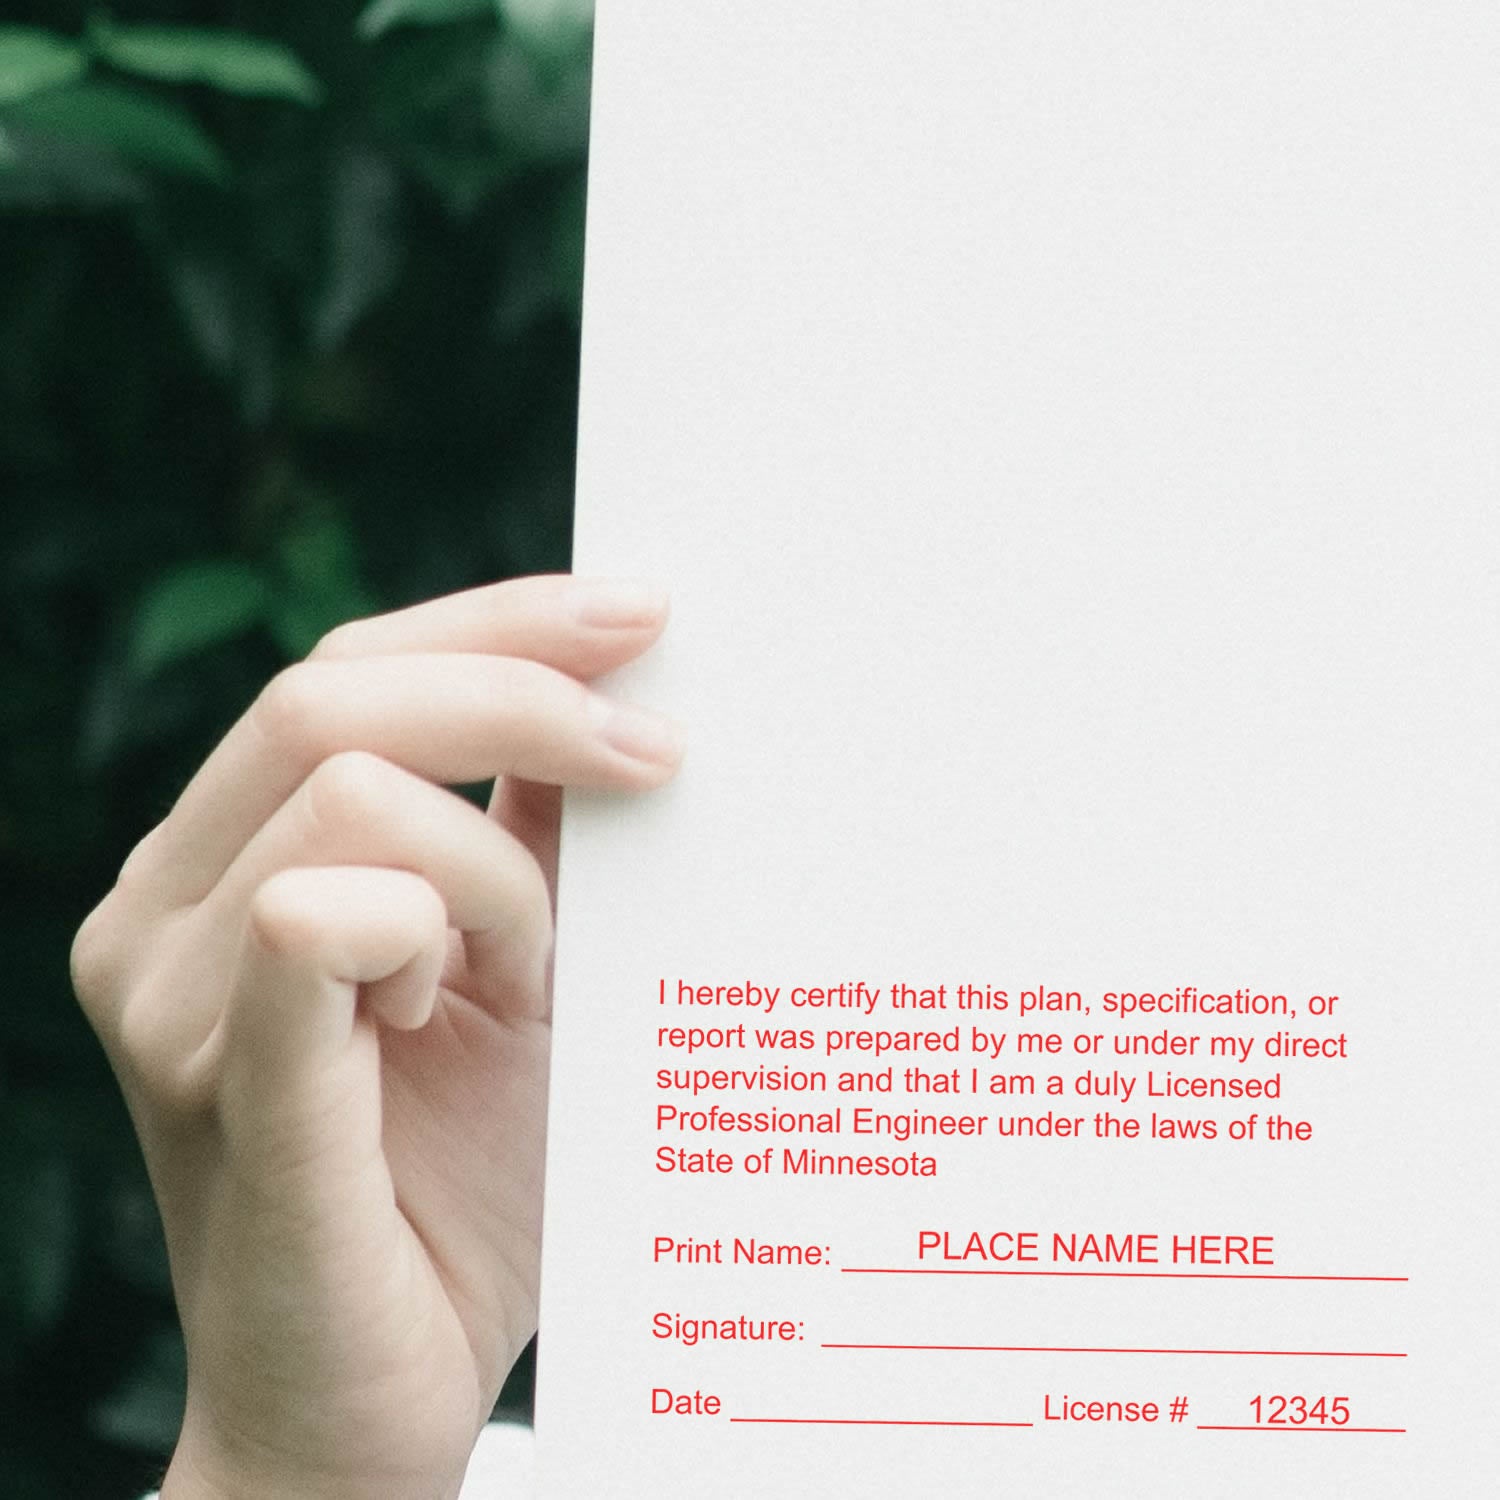 I hereby certify that this plan, specification, or
report was prepared by me or under my direct
supervision and that I am a duly Licensed
Professional Engineer under the laws of the
State of Minnesota
Print Name: PLACE NAME HERE
Signature:
Date License # 12345